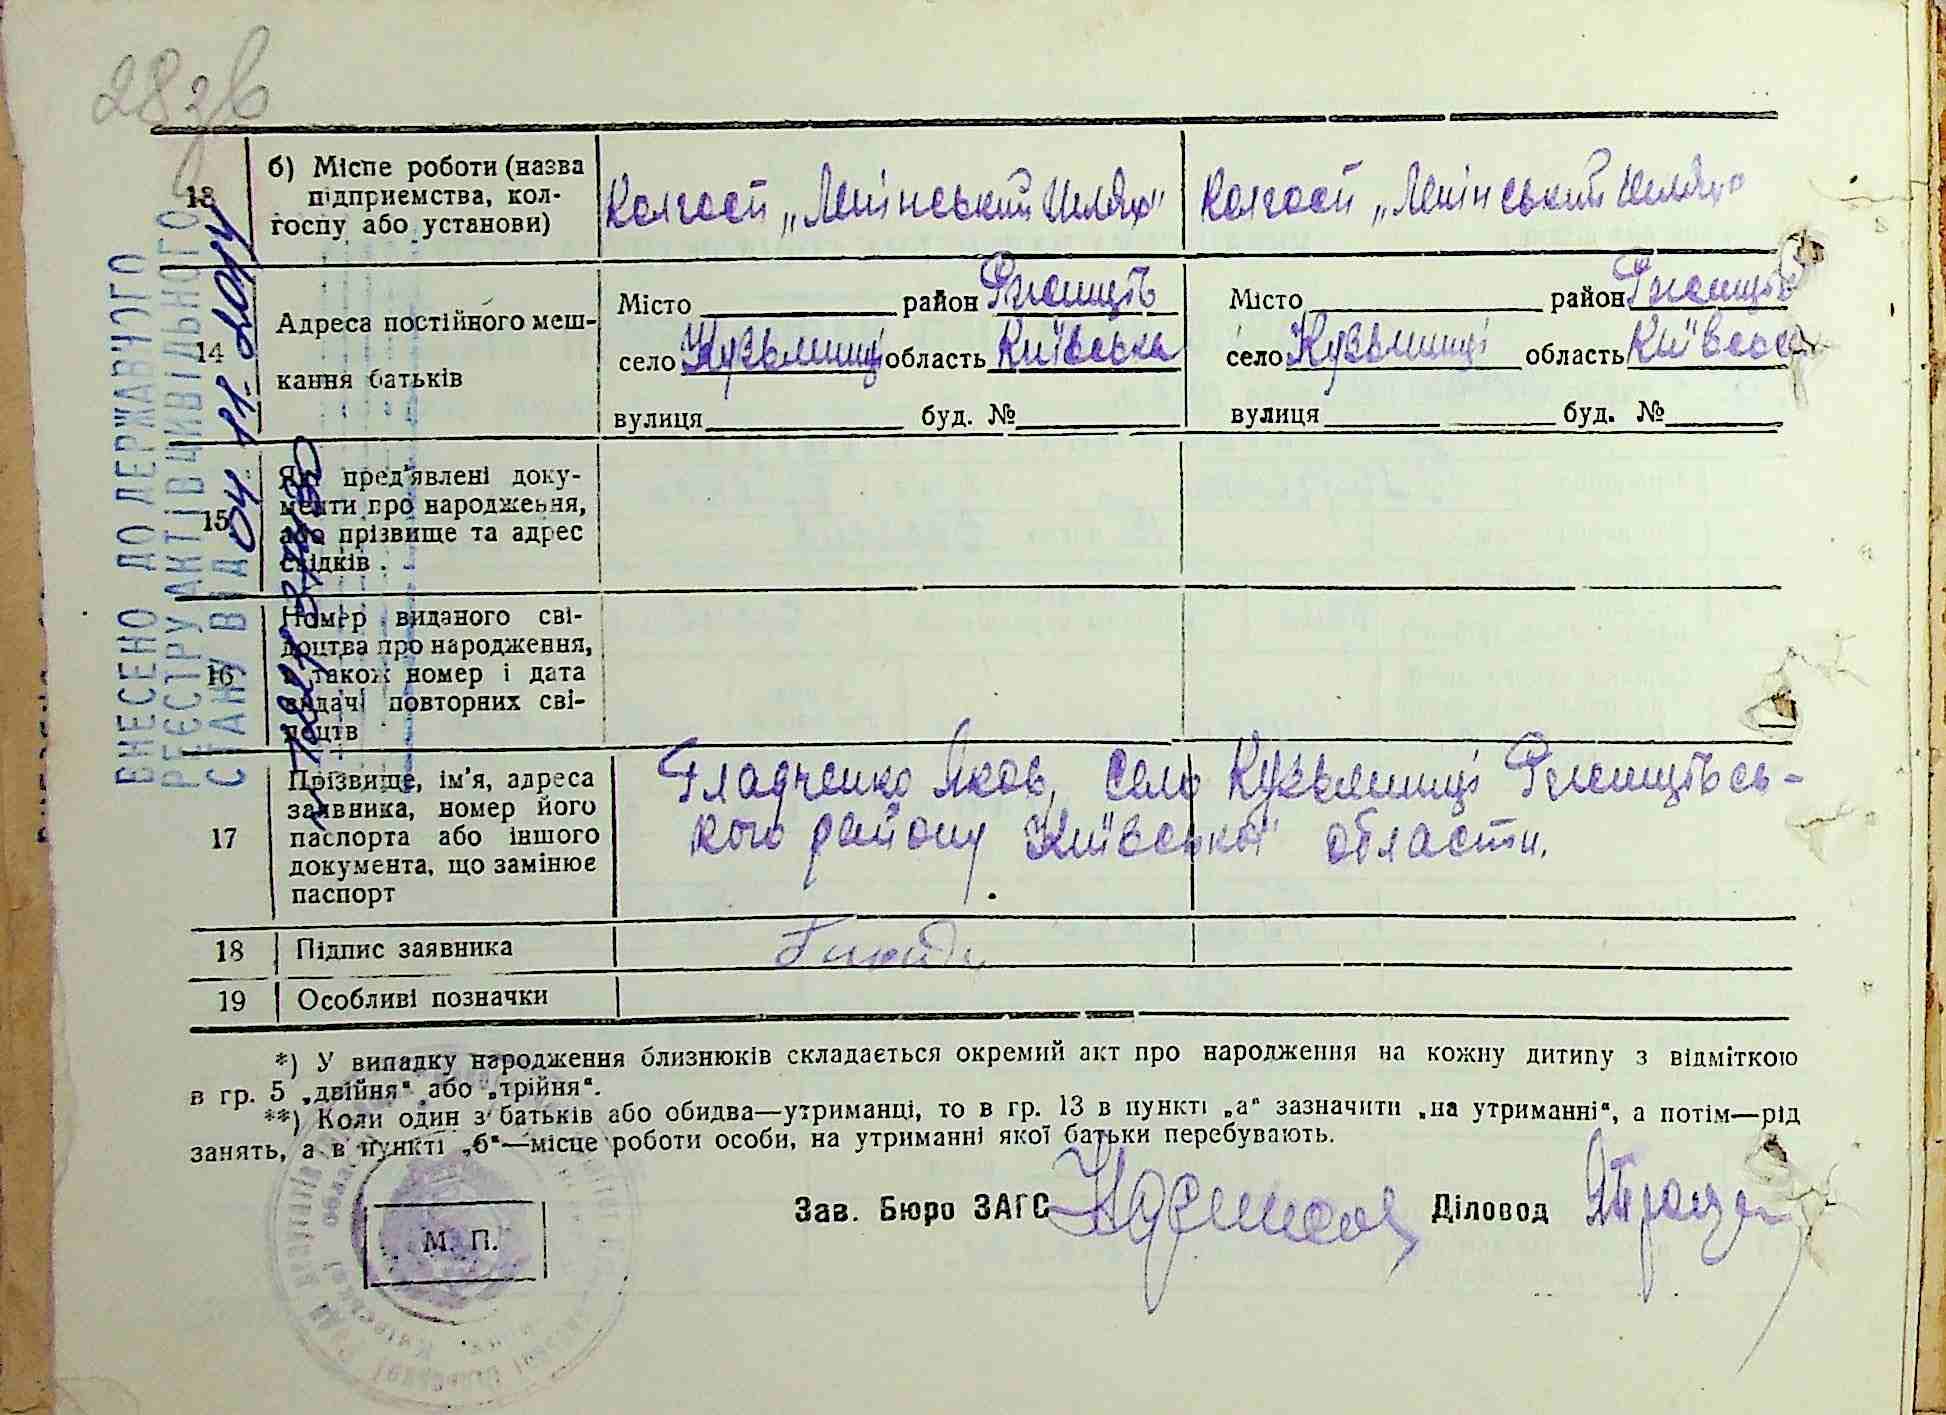 28 зв
13
б) Місце роботи (назва
підприємства, кол-
госпу або установи)
Колгосп „Ленінський Шлях"
Колгосп „Ленінський Шлях"
14
Адреса постійного меш-
кання батьків
Місто район Ржищів
село Кузьминці область Київська
вулиця буд. №
Місто район Ржищів
село Кузьминці область Київська
вулиця буд. №
15
Які пред'явлені доку-
менти про народження,
або прізвище та адрес
свідків
16
Номер виданого сві-
доцтва про народження,
а також номер і дата
видачі повторних сві-
доцтв
17
Прізвище, ім'я, адреса
заявника, номер його
паспорта або іншого
документа, що замінює
паспорт
Гладченко Яков, село Кузьминці Ржищівсь-
кого району Київської области.
18 Підпис заявника
19 Особливі позначки
*) У випадку народження близнюків складається окремий акт про народження на кожну дитину з відміткою
в гр. 5 „двійня“ або „трійня“.
**) Коли один з батьків або обидва—утриманці, то в гр. 13 в пункті „а“ зазначити „на утриманні“, а потім—рід
занять, а в пункті „б“—місце роботи особи, на утриманні якої батьки перебувають.
Зав. Бюро ЗАГС Діловод
М. П.
ВНЕСЕНО ДО ДЕРЖАВНОГО
РЕЄСТРУ АКТІВ ЦИВІЛЬНОГО
СТАНУ ВІД 04.11.20